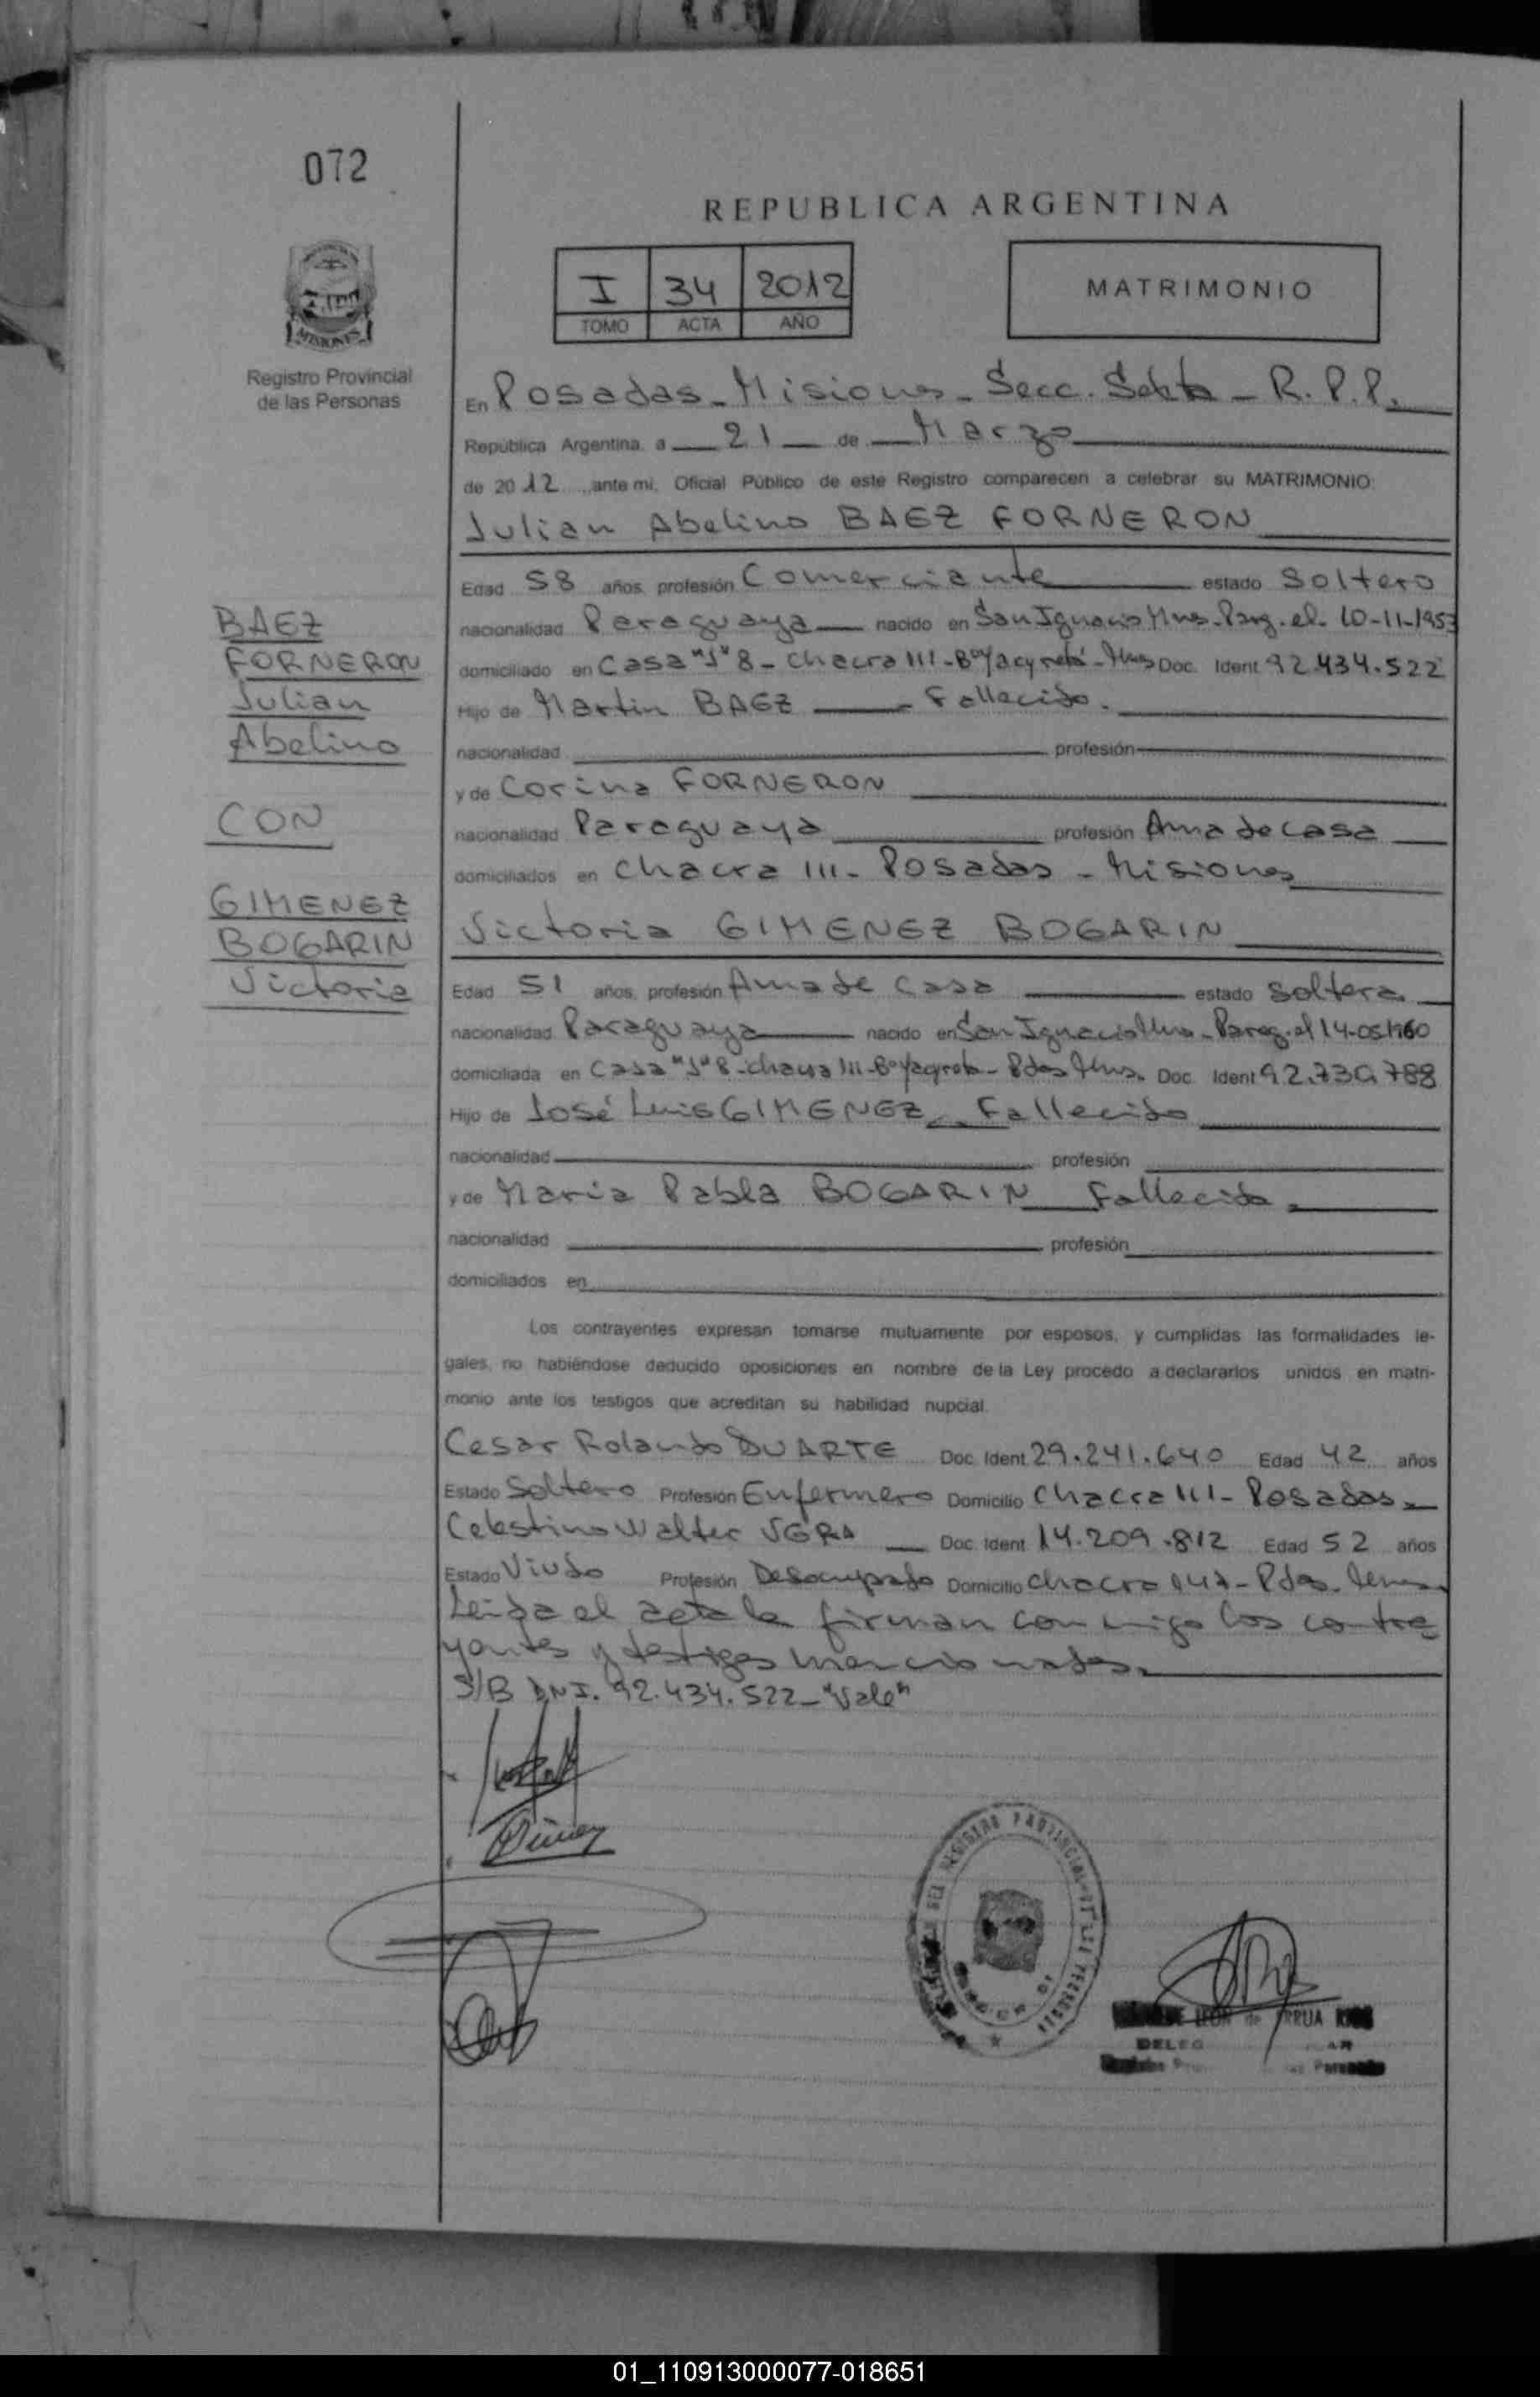 072
REPUBLICA ARGENTINA
I 34 2012
TOMO ACTA AÑO
MATRIMONIO
MISIONES
Registro Provincial
de las Personas
En Posadas - Misiones - Secc. Sexta - R.P.P.
República Argentina, a 21 de Marzo
de 2012, ante mi, Oficial Público de este Registro comparecen a celebrar su MATRIMONIO:
Julian Abelino BAEZ FORNERON
Edad 58 años, profesión Comerciante estado Soltero
nacionalidad Paraguaya nacido en San Ignacio Mnes - Parg. el 10-11-1953
domiciliado en Casa "J" 8 - Chacra 111 - Bº Yacyretá - Mnes Doc. Ident 92.434.522
Hijo de Martin BAEZ Fallecido.
nacionalidad profesión
y de Corina FORNERON
nacionalidad Paraguaya profesión Ama de casa
domiciliados en Chacra 111 - Posadas - Misiones
Victoria GIMENEZ BOGARIN
Edad 51 años, profesión Ama de Casa estado Soltera
nacionalidad Paraguaya nacido en San Ignacio Mnes - Parag. el 14-05-1960
domiciliada en Casa "J" 8 - chacra 111 - Bº Yacyreta - Pdas Mnes. Doc. Ident 92.730.788
Hijo de José Luis GIMENEZ Fallecido
nacionalidad profesión
y de Maria Pabla BOGARIN Fallecida
nacionalidad profesión
domiciliados en
BAEZ
FORNERON
Julian
Abelino
CON
GIMENEZ
BOGARIN
Victoria
Los contrayentes expresan tomarse mutuamente por esposos, y cumplidas las formalidades le-
gales, no habiéndose deducido oposiciones en nombre de la Ley procedo a declararlos unidos en matri-
monio ante los testigos que acreditan su habilidad nupcial.
Cesar Rolando DUARTE Doc. Ident 29.241.640 Edad 42 años
Estado Soltero Profesión Enfermero Domicilio Chacra 111 - Posadas
Celestino Walter VERA Doc. Ident 14.209.812 Edad 52 años
Estado Viudo Profesión Desocupado Domicilio chacra 147 - Pdas. Mnes.
Leida el acta la firman conmigo los contra
yentes y testigos mencionados.
S/B DNI. 92.434.522 - "Vale"
DEL REGISTRO PROVINCIAL DE LAS PERSONAS
LEON de ARRUA
01_110913000077-018651